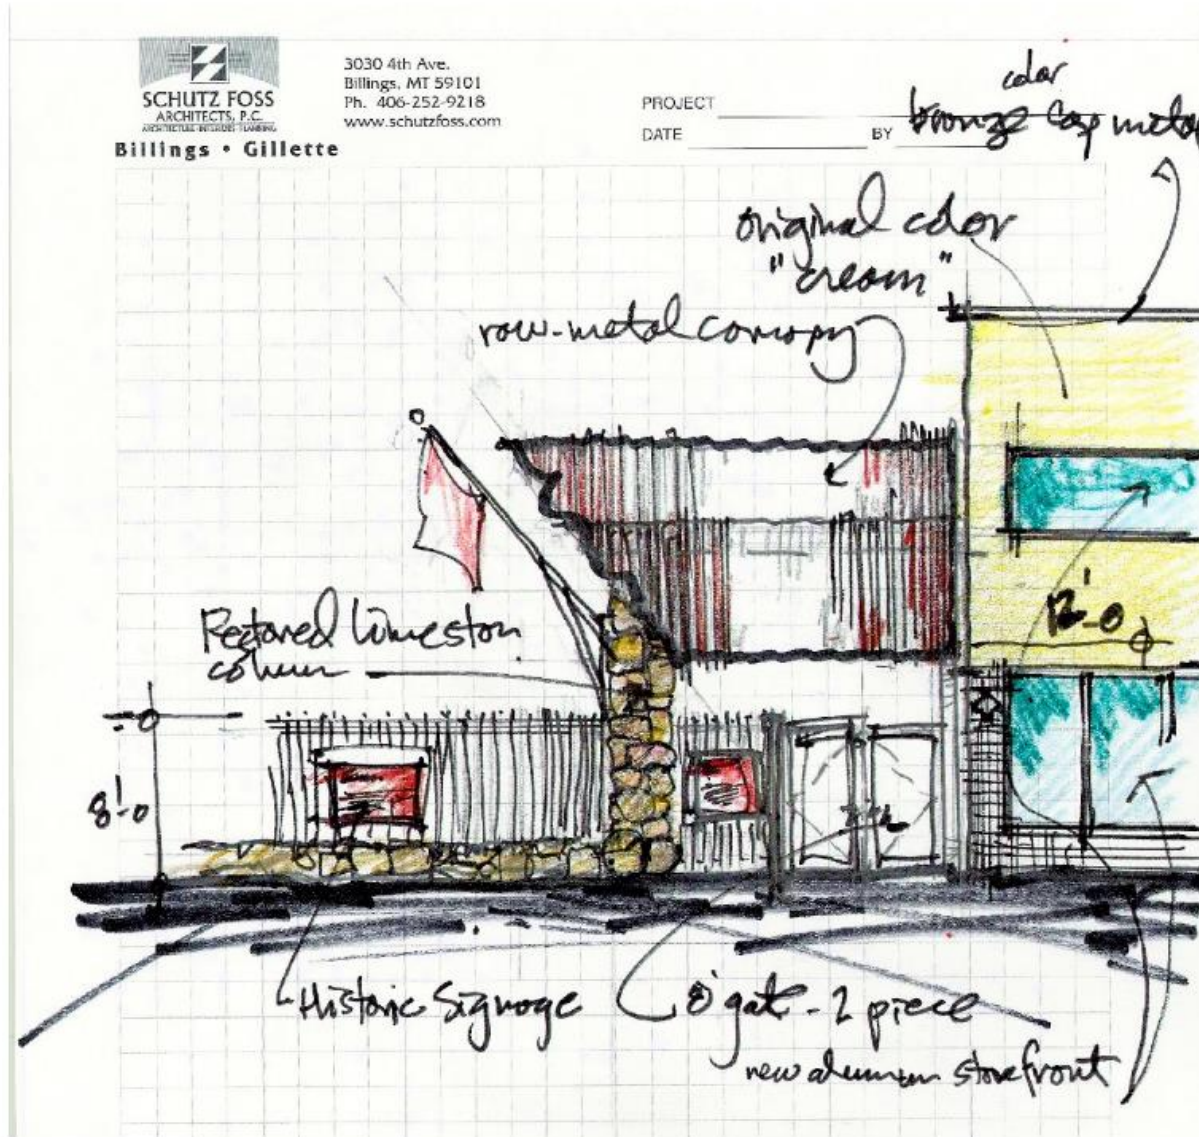 SCHUTZ FOSS
ARCHITECTS, P.C.
ARCHITECTURE•INTERIORS•PLANNING
Billings • Gillette
3030 4th Ave.
Billings, MT 59101
Ph. 406-252-9218
www.schutzfoss.com
PROJECT
DATE
BY
color
bronze cap metal
original color
"cream"
raw-metal canopy
Restored Limeston
column
12'-0
8'-0
Historic Signage
8' gate - 2 piece
new aluminum storefront